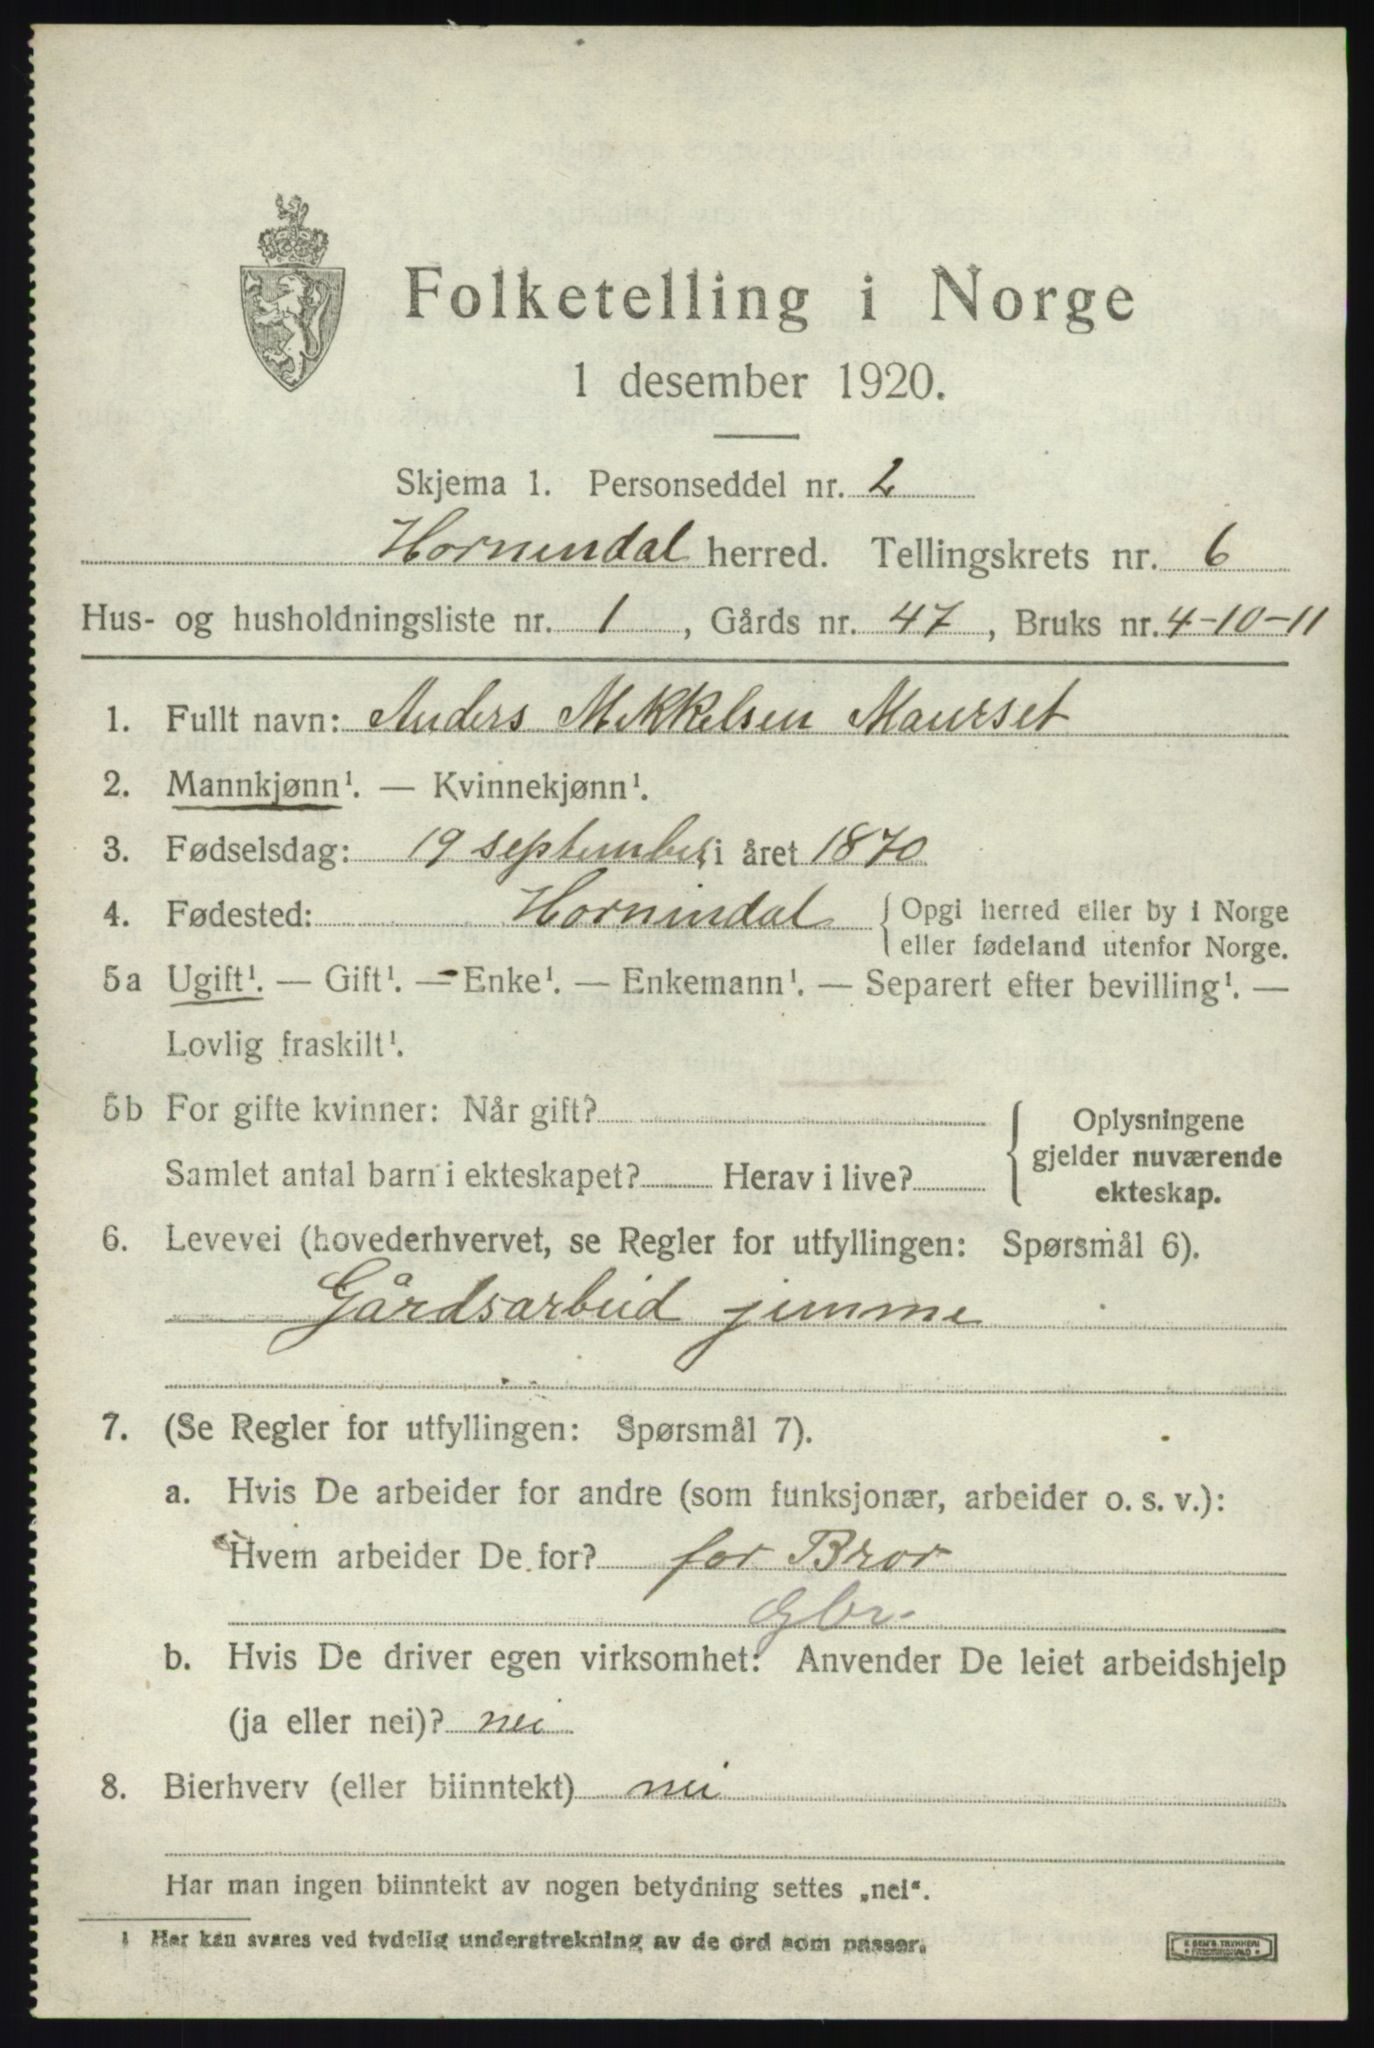 Folketelling i Norge
1 desember 1920.
Skjema 1. Personseddel nr. 2
Hornindal herred. Tellingskrets nr. 6
Hus- og husholdningsliste nr. 1, Gårds nr. 47, Bruks nr. 4-10-11
1. Fullt navn: Anders Mikkelsen Maurset
2. Mannkjønn¹. — Kvinnekjønn¹.
3. Fødselsdag: 19 september i året 1870
4. Fødested: Hornindal { Opgi herred eller by i Norge
eller fødeland utenfor Norge.
5a Ugift¹. — Gift¹. — Enke¹. — Enkemann¹. — Separert efter bevilling¹. —
Lovlig fraskilt¹.
5b For gifte kvinner: Når gift?
Samlet antal barn i ekteskapet? Herav i live?
Oplysningene
gjelder nuværende
ekteskap.
6. Levevei (hovederhvervet, se Regler for utfyllingen: Spørsmål 6).
Gårdsarbeid jemme
7. (Se Regler for utfyllingen: Spørsmål 7).
a. Hvis De arbeider for andre (som funksjonær, arbeider o. s. v.):
Hvem arbeider De for? for Bror
Gbr.
b. Hvis De driver egen virksomhet: Anvender De leiet arbeidshjelp
(ja eller nei)? nei
8. Bierhverv (eller biinntekt) nei
Har man ingen biinntekt av nogen betydning settes „nei“.
1 Her kan svares ved tydelig understrekning av de ord som passer.